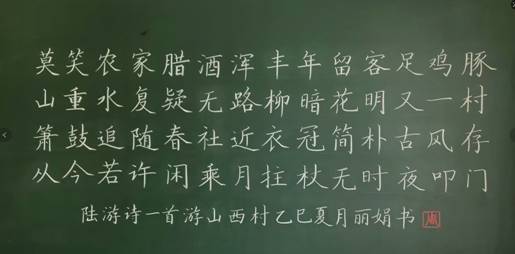 莫笑农家腊酒浑丰年留客足鸡豚
山重水复疑无路柳暗花明又一村
箫鼓追随春社近衣冠简朴古风存
从今若许闲乘月拄杖无时夜叩门
陆游诗一首游山西村乙巳夏月丽娟书